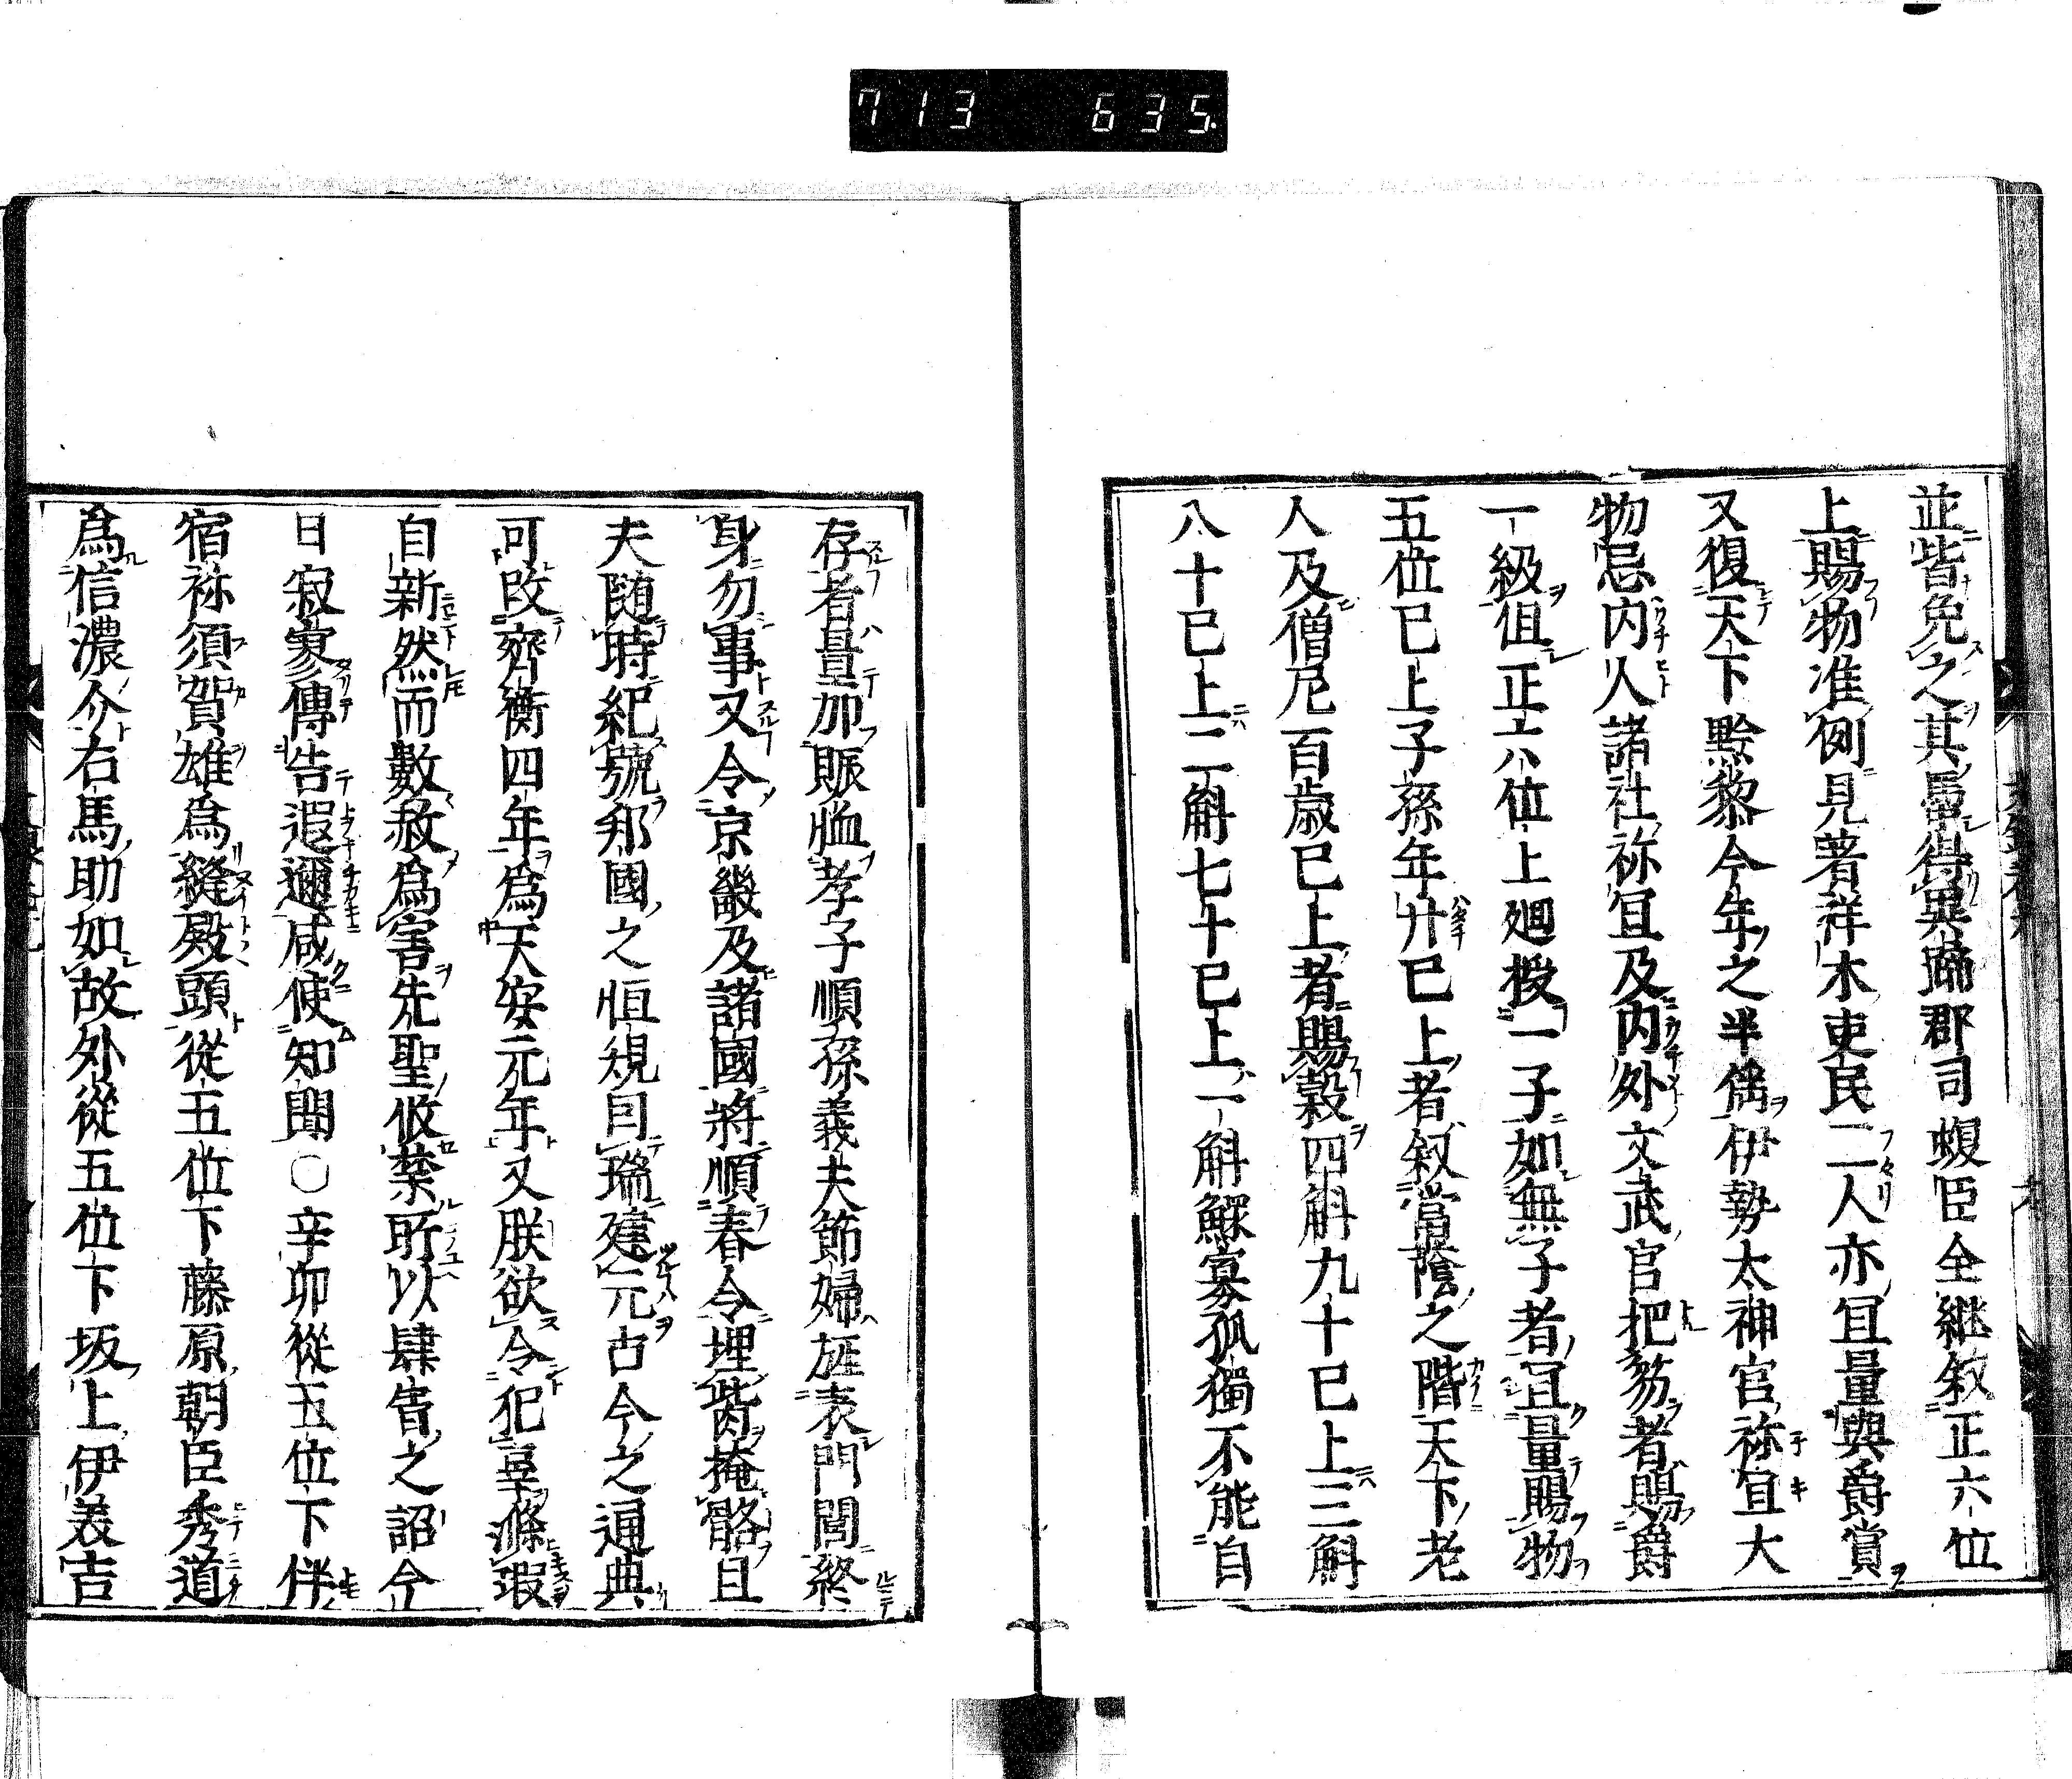 713 635.
並皆免之其最得異蹄郡司蝮臣全継敘正六位
上賜物准例見著祥木吏民二人亦冝量與爵賞
又復天下黔黎今年之半徭伊勢太神官祢冝大
物忌内人諸社祢冝及内外文武官把笏者賜爵
一級但正六位上廻授一子如無子者冝量賜物
五位已上子孫年廾已上者叙當蔭之階天下老
人及僧尼百歳已上者賜穀四斛九十已上三斛
八十已上二斛七十已上一斛鰥寡孤獨不能自
存者量加賑恤孝子順孫義夫節婦旌表門閭終
身勿事又令京畿及諸國將順春令埋胔掩骼且
夫随時紀號邦國之恒規因瑞建元古今之通典
可改齊衡四年爲天安元年又朕欲令犯辜滌瑕
自新然而數赦爲害先聖攸禁所以肆眚之詔今
日寂寥傳告遐邇咸使知聞〇辛卯從五位下伴
宿祢須賀雄爲縫殿頭從五位下藤原朝臣秀道
爲信濃介右馬助如故外從五位下坂上伊美吉